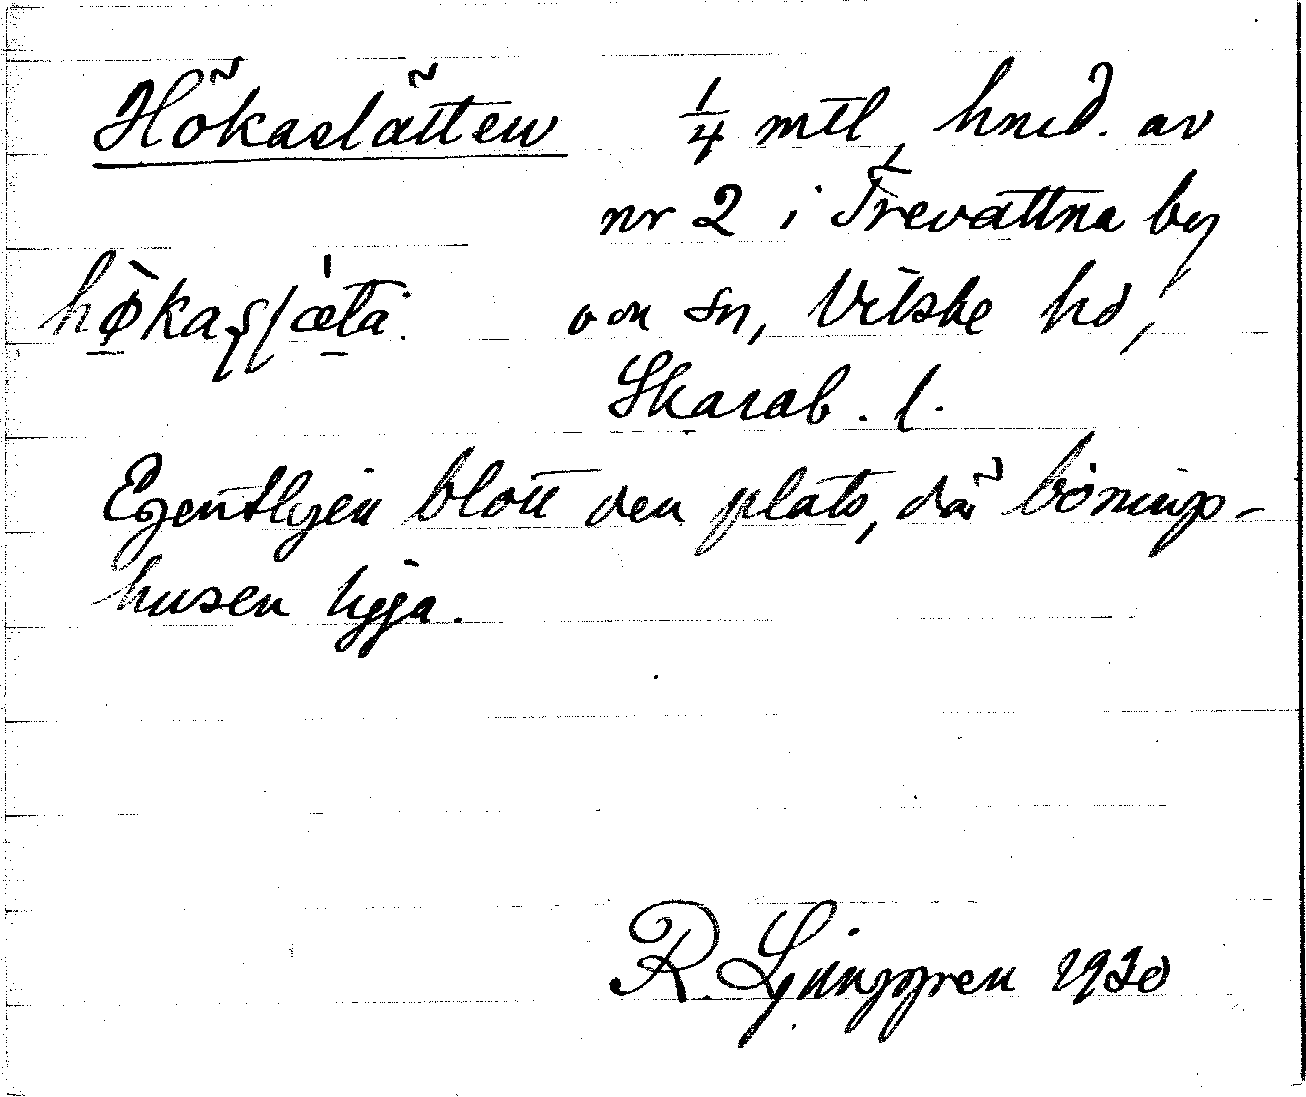 Hökaslätten 1/4 mtl, hmd. av
nr 2 i Trevattna by
o sn, Vilske hd,
Skarab. l.
Egentligen blott den plats, där bonings-
husen ligga.
R. Ljunggren 1930